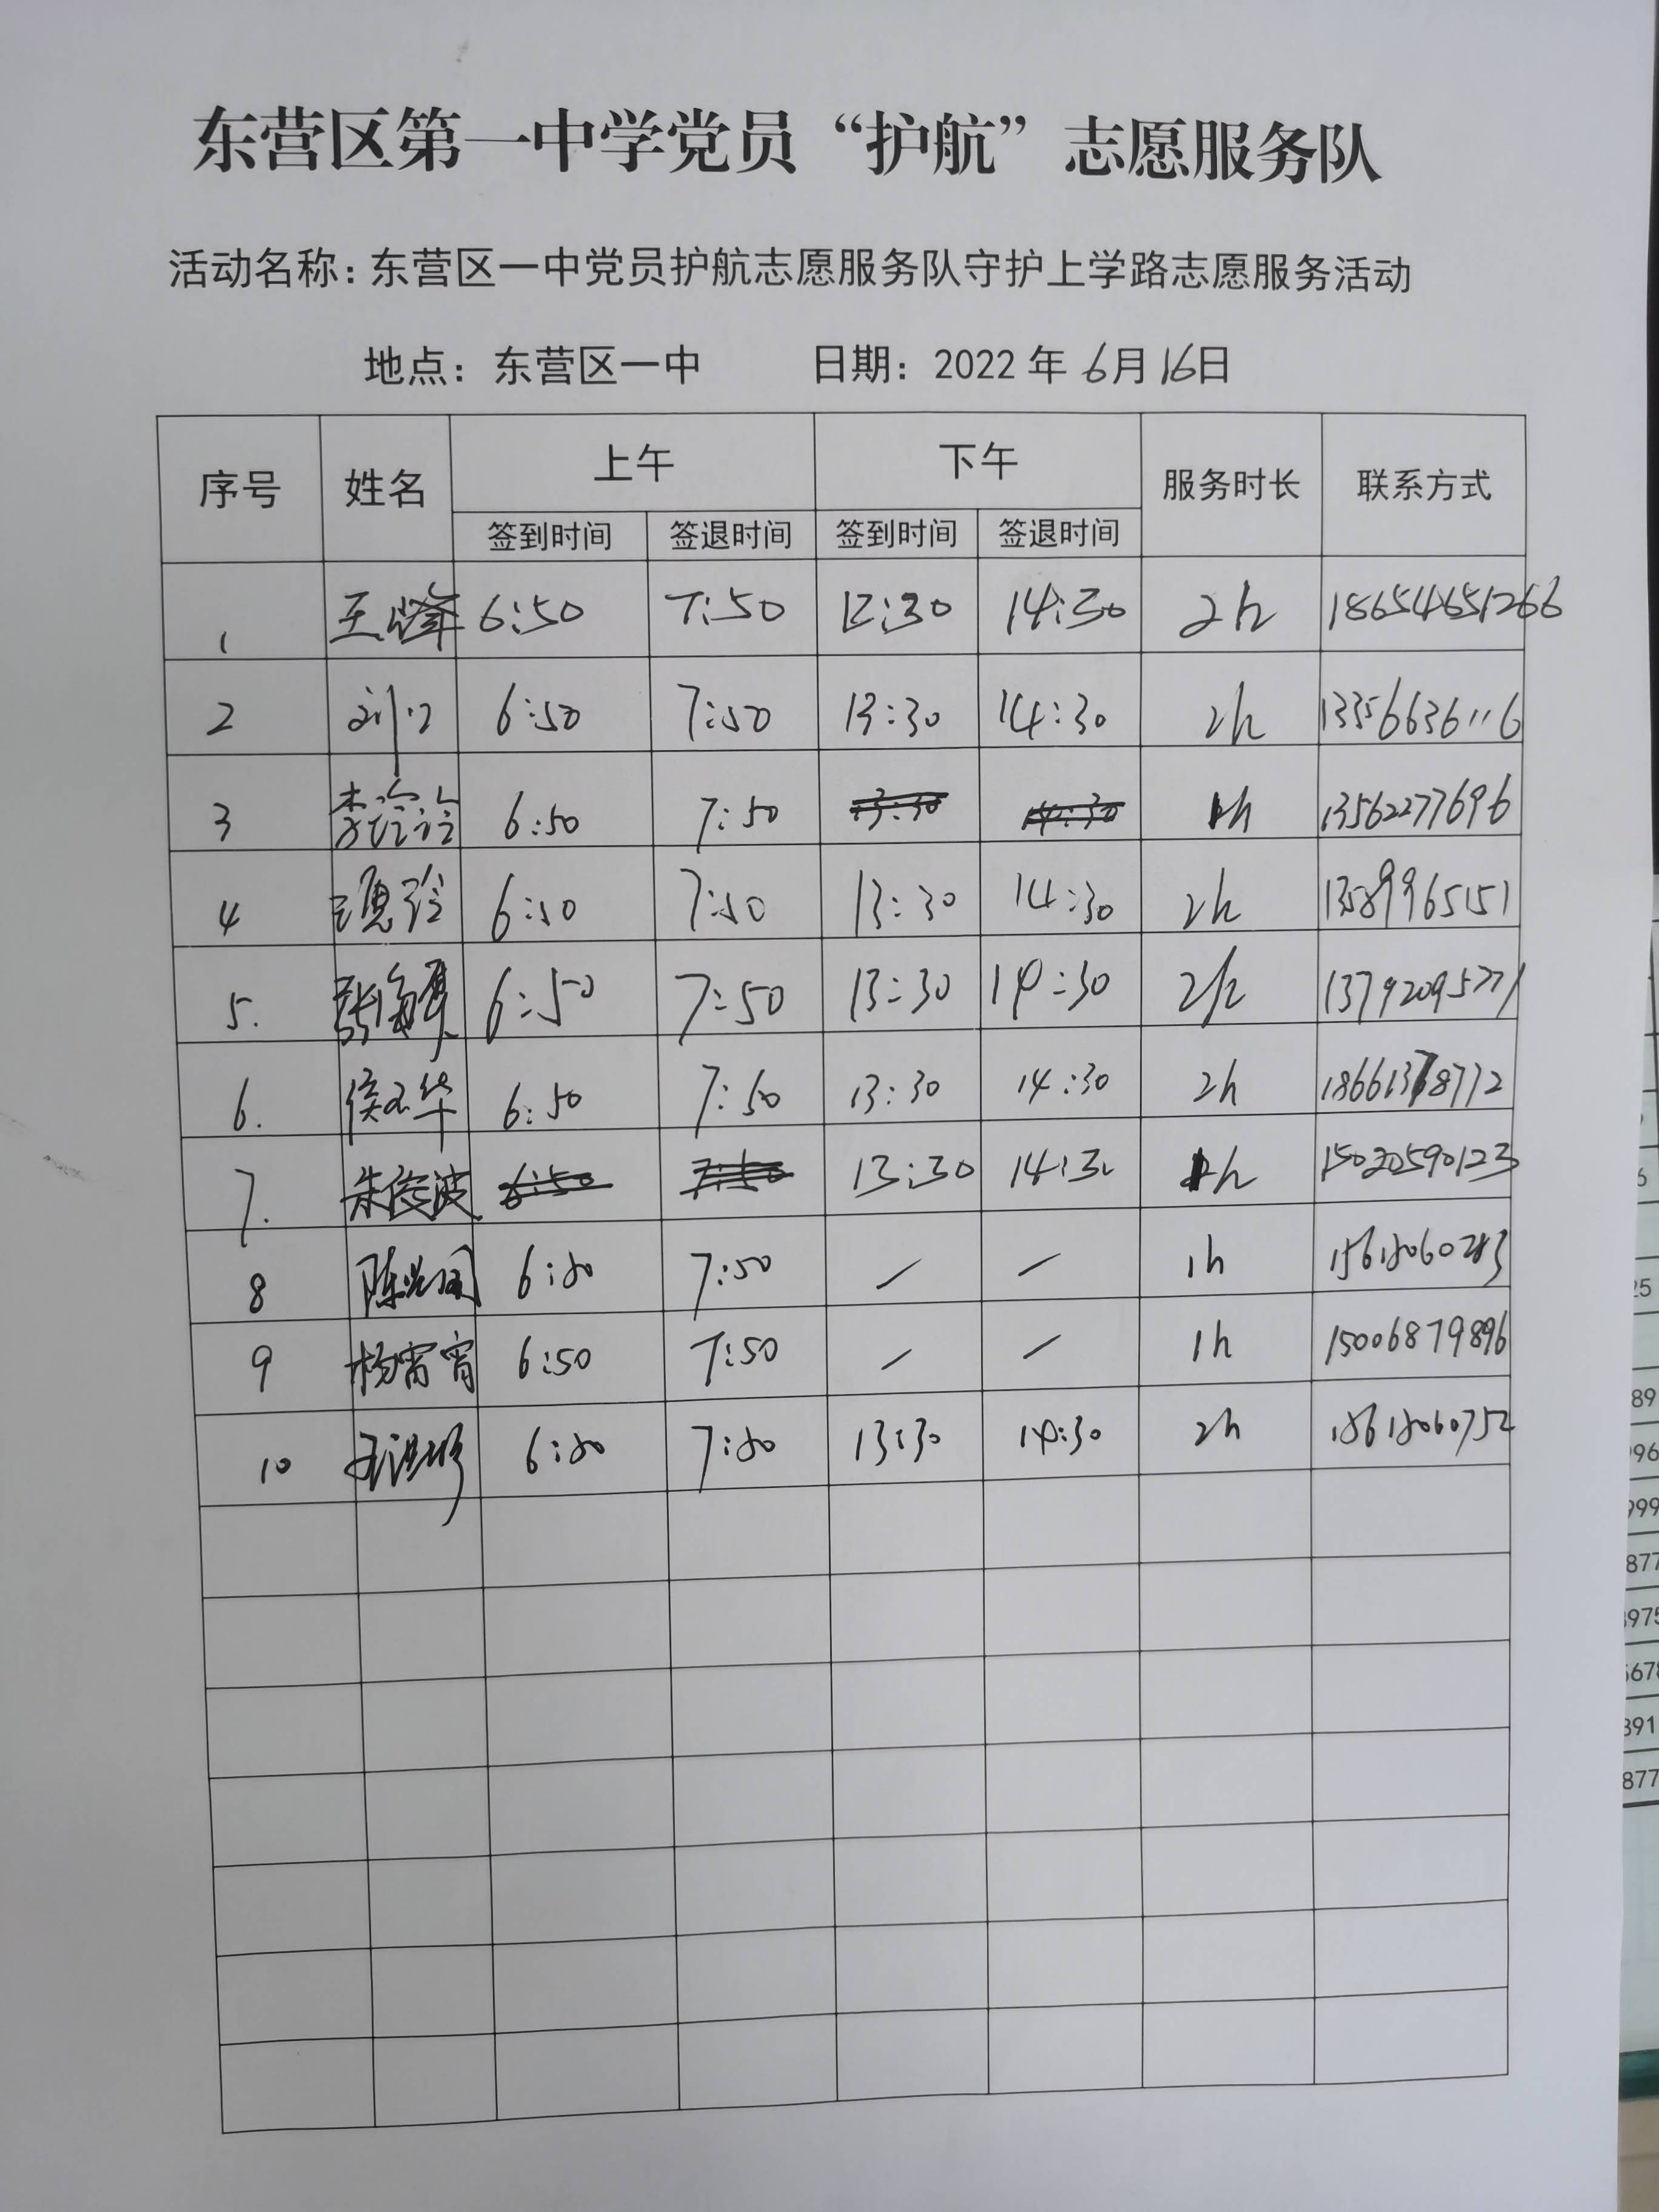 东营区第一中学党员“护航”志愿服务队
活动名称：东营区一中党员护航志愿服务队守护上学路志愿服务活动
地点：东营区一中 日期：2022 年 6月 16日
序号 姓名 上午 下午 服务时长 联系方式
签到时间 签退时间 签到时间 签退时间
1 王峰 6:50 7:50 14:30 2h 18654651266
2 6:50 7:50 13:30 14:30 2h 13356636116
3 6:50 7:50 13:30 14:30 1h 13562277696
4 6:50 7:50 13:30 14:30 2h 13589965151
5. 6:50 7:50 13:30 14:30 2h 13792095771
6. 6:50 7:50 13:30 14:30 2h
7. 朱俊波 6:50 7:50 13:30 14:30 1h 15020590123
8 6:50 7:50 / / 1h
9 杨宵宵 6:50 7:50 / / 1h 15006879896
10 6:50 7:50 13:30 14:30 2h 18618060752
25
89
996
999
877
8975
5678
891
877